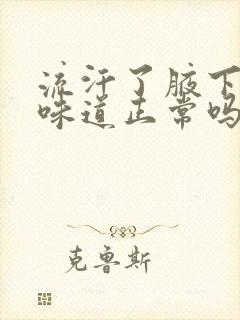 流汗了腋下
味道正常吗
克鲁斯